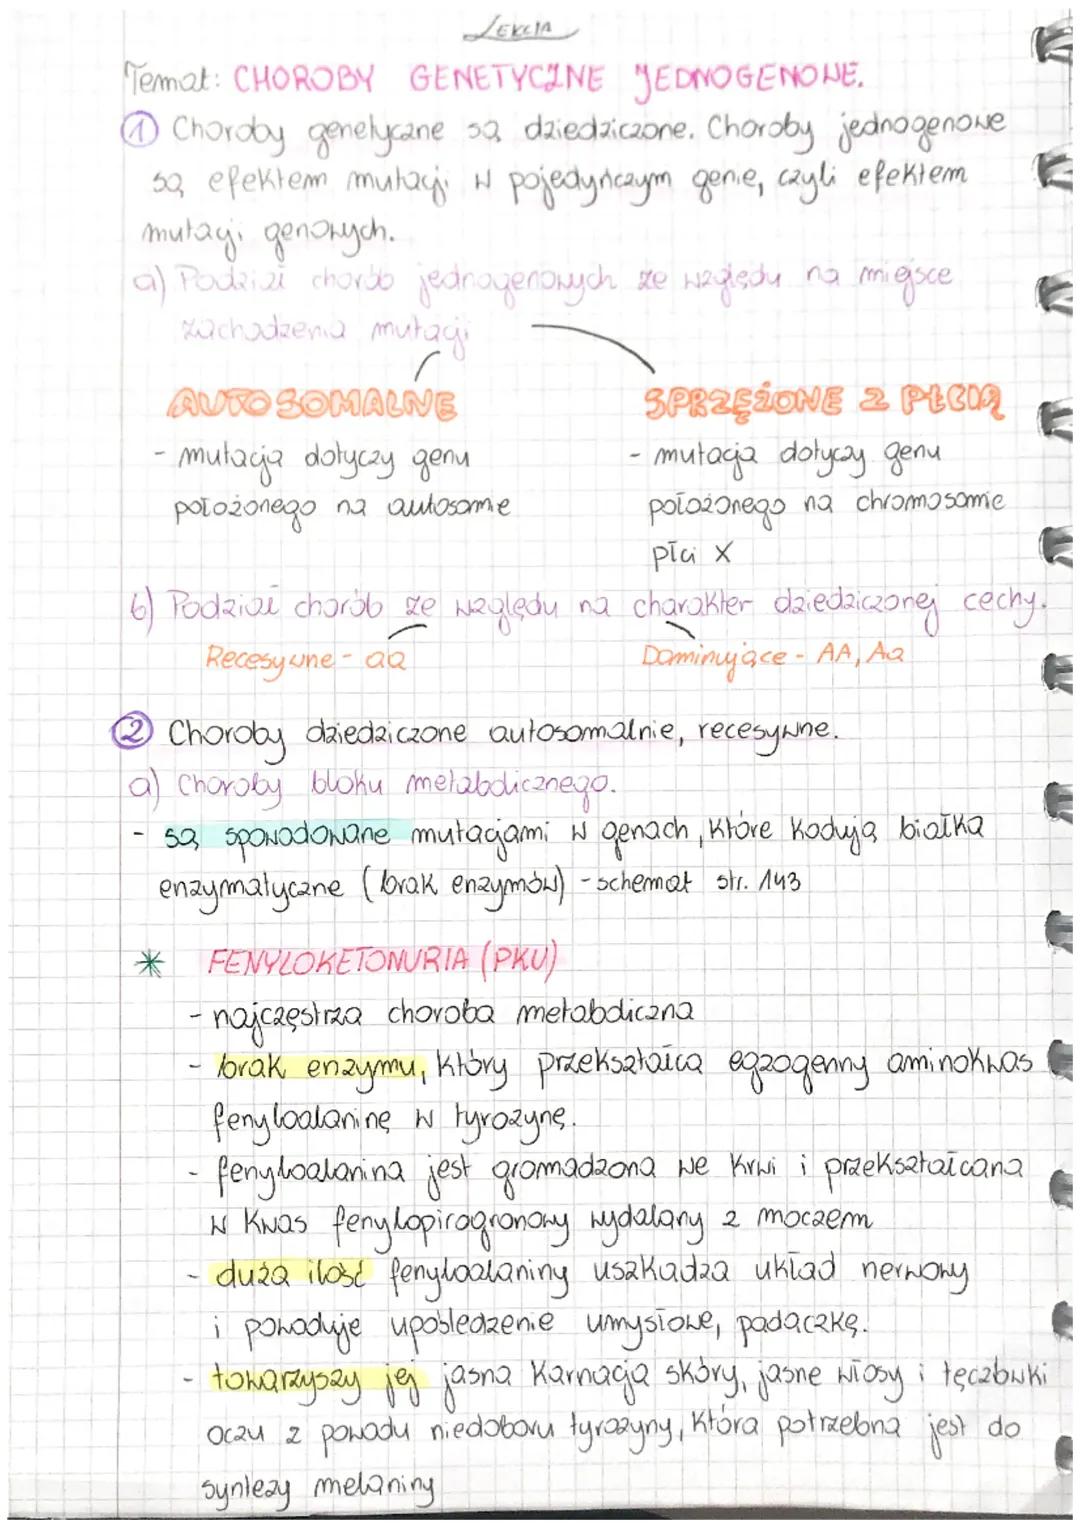 LEKCJA
Temat: CHOROBY GENETYCZNE JEDNOGENOWE.
① Choroby genetyczne są dziedziczone. Choroby jednogenowe
są efektem mutacji w pojedyńczym genie, czyli efektem
mutacji genowych.
a) Podział chorób jednogenowych ze względu na miejsce
zachodzenia mutacji
AUTOSOMALNE
- mutacja dotyczy genu
położonego na autosomie
SPRZĘŻONE Z PŁCIĄ
- mutacja dotyczy genu
położonego na chromosomie
płci X
b) Podział chorób ze względu na charakter dziedziczonej cechy.
Recesywne - aa
Dominujące - AA, Aa
② Choroby dziedziczone autosomalnie, recesywne.
a) Choroby bloku metabolicznego.
- są spowodowane mutacjami w genach, które kodują białka
enzymatyczne (brak enzymów) - schemat str. 143
* FENYLOKETONURIA (PKU)
- najczęstrza choroba metaboliczna
- brak enzymu, który przekształca egzogenny aminokwas
fenyloalaninę w tyrozynę.
- fenyloalanina jest gromadzona we krwi i przekształcana
w kwas fenylopirogronowy wydalany z moczem
- duża ilość fenyloalaniny uszkadza układ nerwowy
i powoduje upośledzenie umysłowe, padaczkę.
- towarzyszy jej jasna karnacja skóry, jasne włosy i tęczówki
oczu z powodu niedoboru tyrozyny, która potrzebna jest do
syntezy melaniny